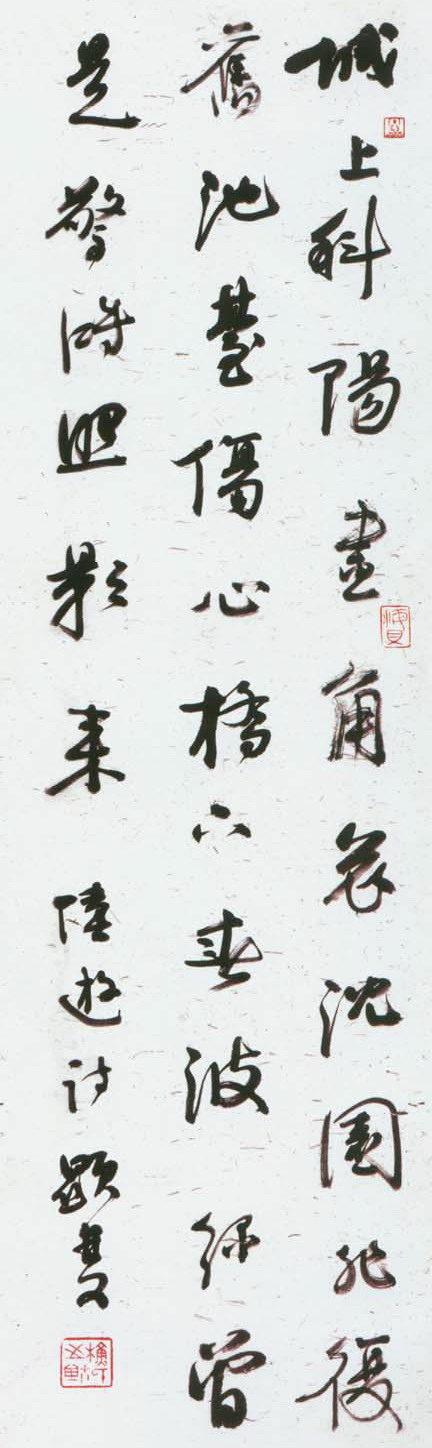 城上斜陽畫角哀沈園非復
舊池臺傷心橋下春波綠曾
是驚鴻照影來 陸遊詩